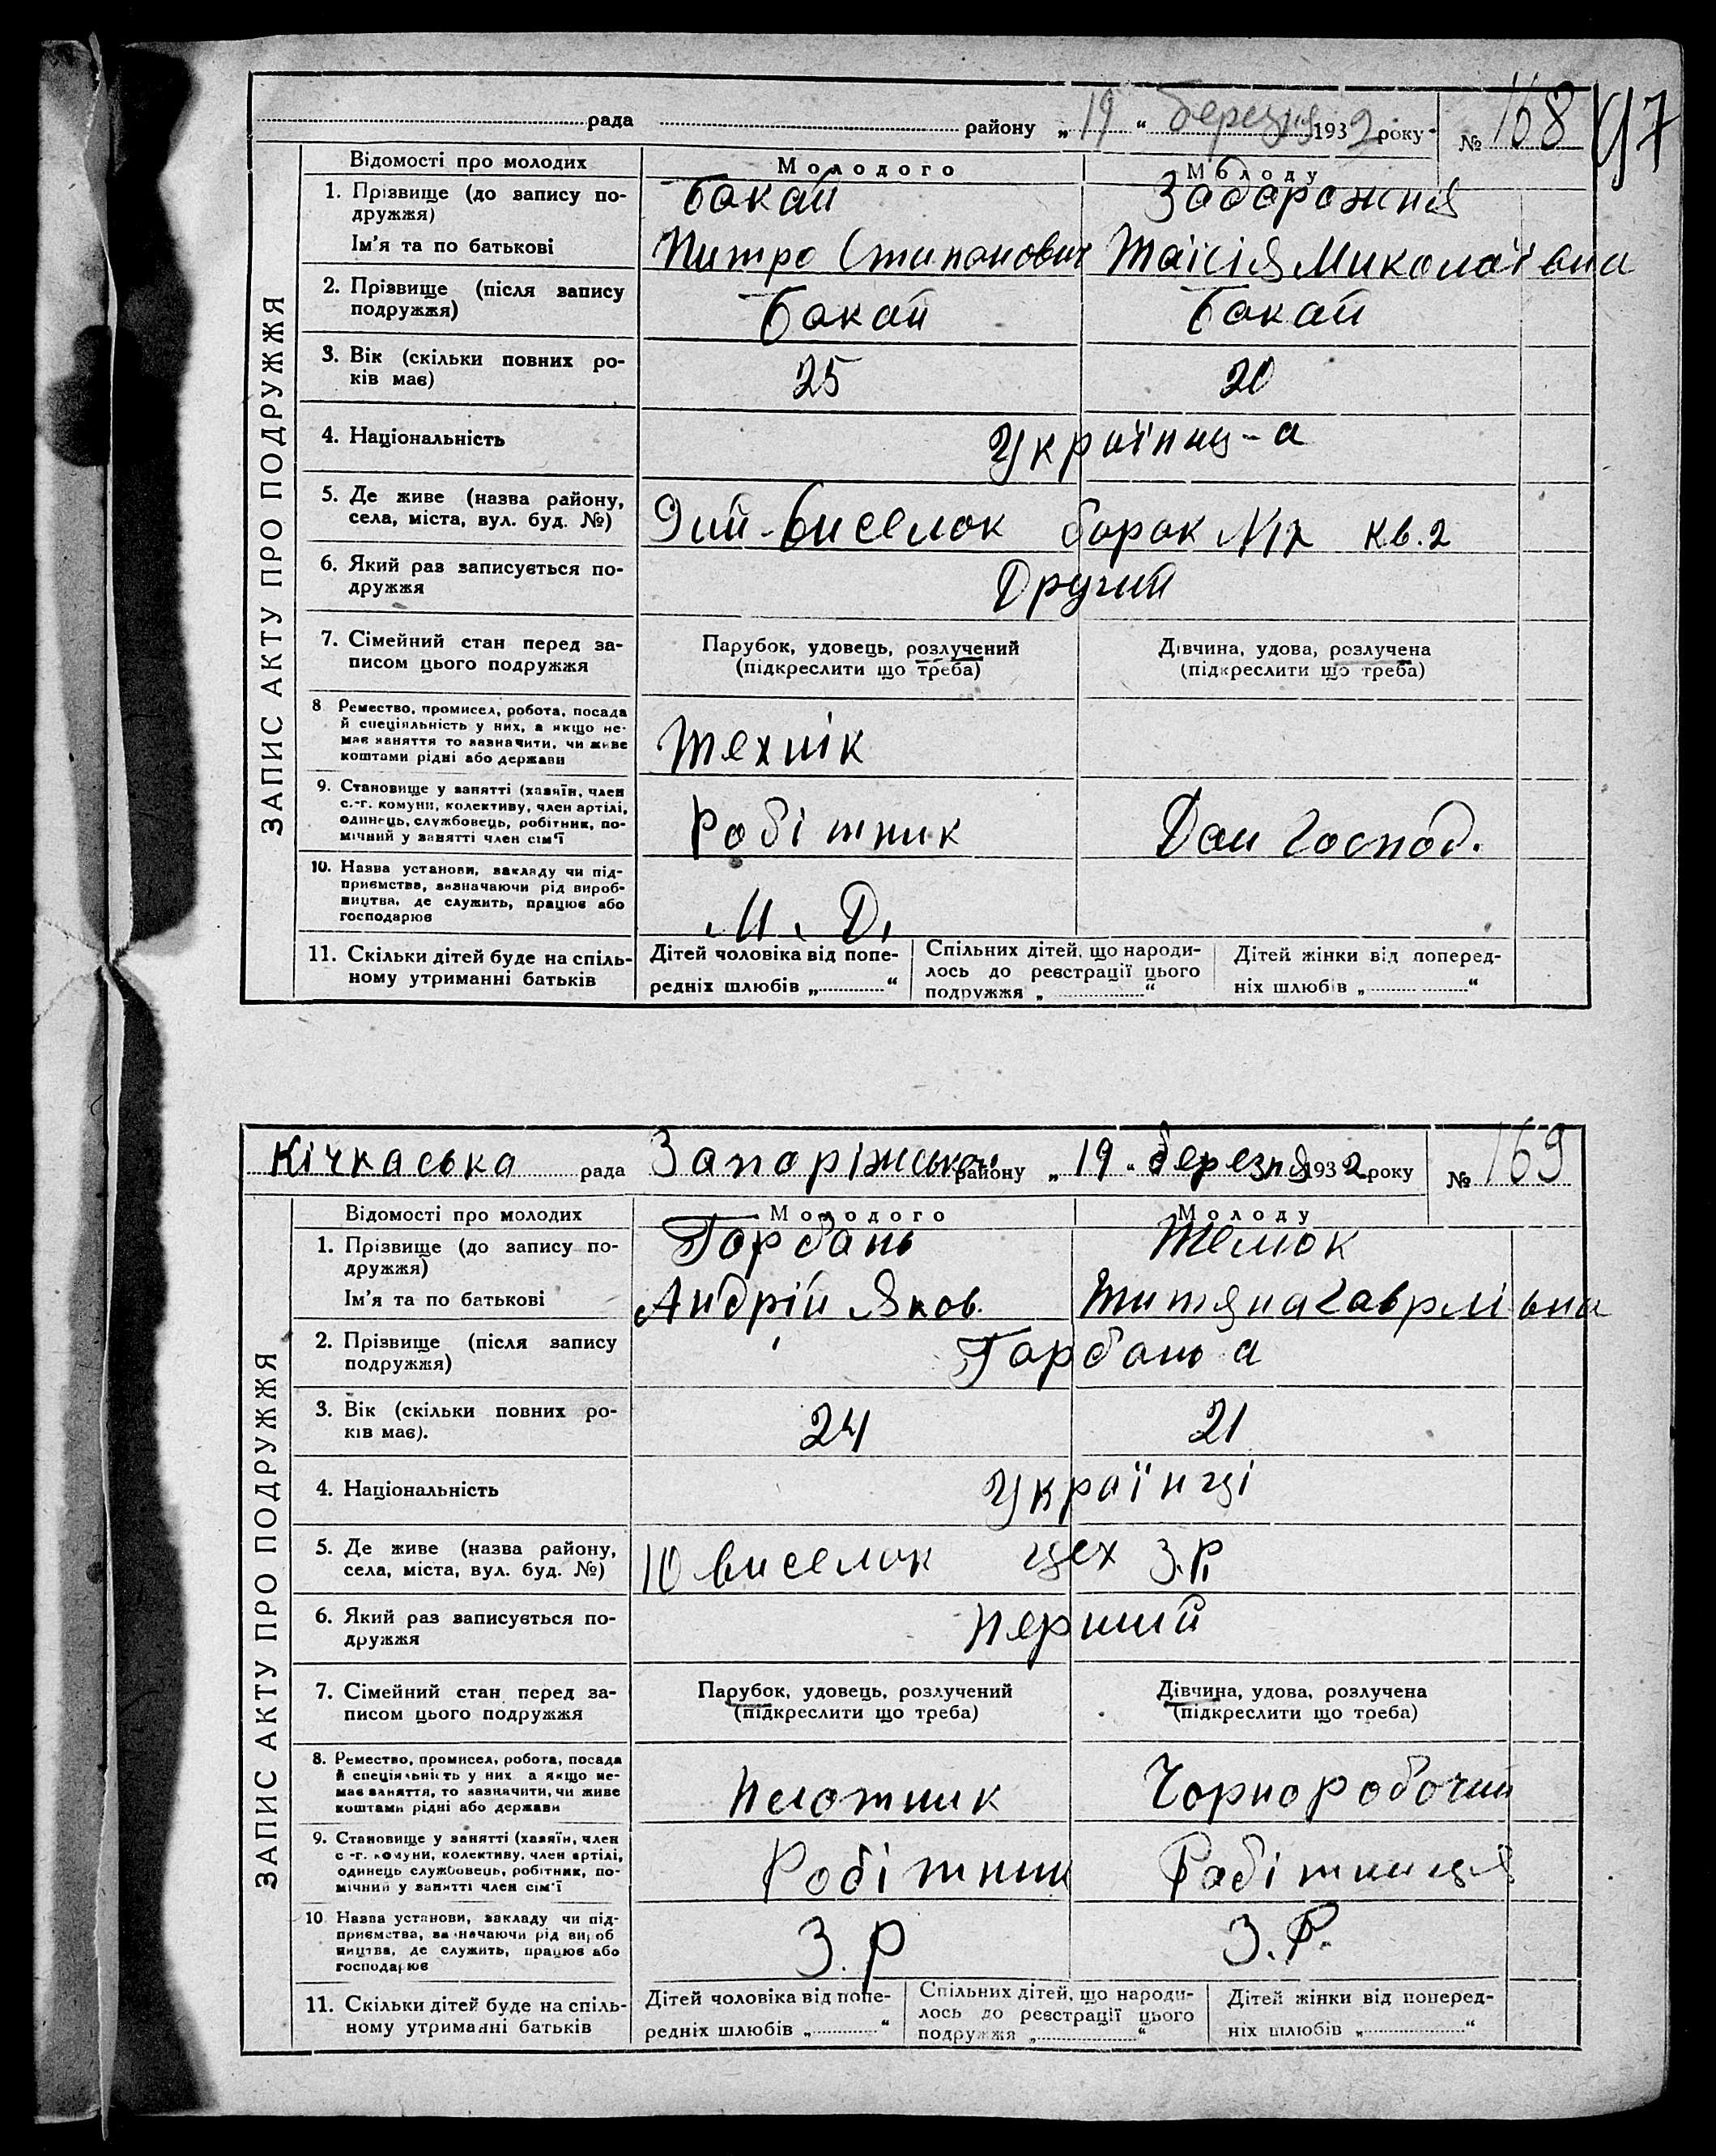 рада району „ 19 “ березня 1932 року № 168 97
ЗАПИС АКТУ ПРО ПОДРУЖЖЯ
Відомості про молодих Молодого Молоду
1. Прізвище (до запису по-
дружжя) Бакай Задорожня
Ім’я та по батькові Питро Стипанович Таїсія Миколаївна
2. Прізвище (після запису
подружжя) Бакай Бакай
3. Вік (скільки повних ро-
ків має) 25 20
4. Національність Українц-а
5. Де живе (назва району,
села, міста, вул. буд. №) 9ий-виселок барак №17 кв.2
6. Який раз записується по-
дружжя Другий
7. Сімейний стан перед за-
писом цього подружжя
Парубок, удовець, розлучений
(підкреслити що треба)
Дівчина, удова, розлучена
(підкреслити що треба)
8. Ремество, промисел, робота, посада
й спеціяльність у них, а якщо не-
має заняття то зазначити, чи живе
коштами рідні або держави
Технік
9. Становище у занятті (хазяїн, член
с.-г. комуни, колективу, член артілі,
одинець, службовець, робітник, по-
мічний у занятті член сім’ї
Робітник Дом Господ.
10. Назва установи, закладу чи під-
приємства, зазначаючи рід вироб-
ництва, де служить, працює або
господарює
М. Д.
11. Скільки дітей буде на спіль-
ному утриманні батьків
Дітей чоловіка від попе-
редніх шлюбів „ “
Спільних дітей, що народи-
лось до реєстрації цього
подружжя „ “
Дітей жінки від поперед-
ніх шлюбів „ “
Кічкаська рада Запоріжського району „ 19 “ березня 1932 року № 169
ЗАПИС АКТУ ПРО ПОДРУЖЖЯ
Відомості про молодих Молодого Молоду
1. Прізвище (до запису по-
дружжя) Горбань
Ім’я та по батькові Андрій Яков. Титяна Гаврлівна
2. Прізвище (після запису
подружжя) Горбань а
3. Вік (скільки повних ро-
ків має). 24 21
4. Національність Українці
5. Де живе (назва району,
села, міста, вул. буд. №) 10 виселок цех З.Р.
6. Який раз записується по-
дружжя перший
7. Сімейний стан перед за-
писом цього подружжя
Парубок, удовець, розлучений
(підкреслити що треба)
Дівчина, удова, розлучена
(підкреслити що треба)
8. Ремество, промисел, робота, посада
й спеціяльність у них а якщо не-
має заняття, то зазначити, чи живе
коштами рідні або держави
плотник Чорноробочий
9. Становище у занятті (хазяїн, член
с.-г. комуни, колективу, член артілі,
одинець службовець, робітник, по-
мічний у занятті член сім’ї
Робітник Робітниця
10 Назва установи, закладу чи під-
приємства, зазначаючи рід вироб
ництва, де служить, працює або
господарює
З.Р З.Р.
11. Скільки дітей буде на спіль-
ному утриманні батьків
Дітей чоловіка від попе-
редніх шлюбів „ “
Спільних дітей, що народи-
лось до реєстрації цього
подружжя „ “
Дітей жінки від поперед-
ніх шлюбів „ “